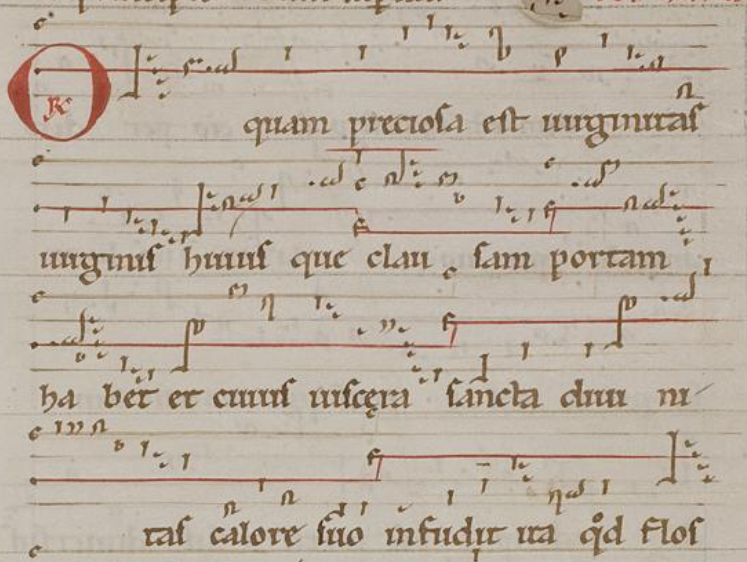 O quam preciosa est uirginitas
uirginis huius que clau sam portam
ha bet et cuius uiscęra sancta diui ni
tas calore suo infudit ita qđ flos